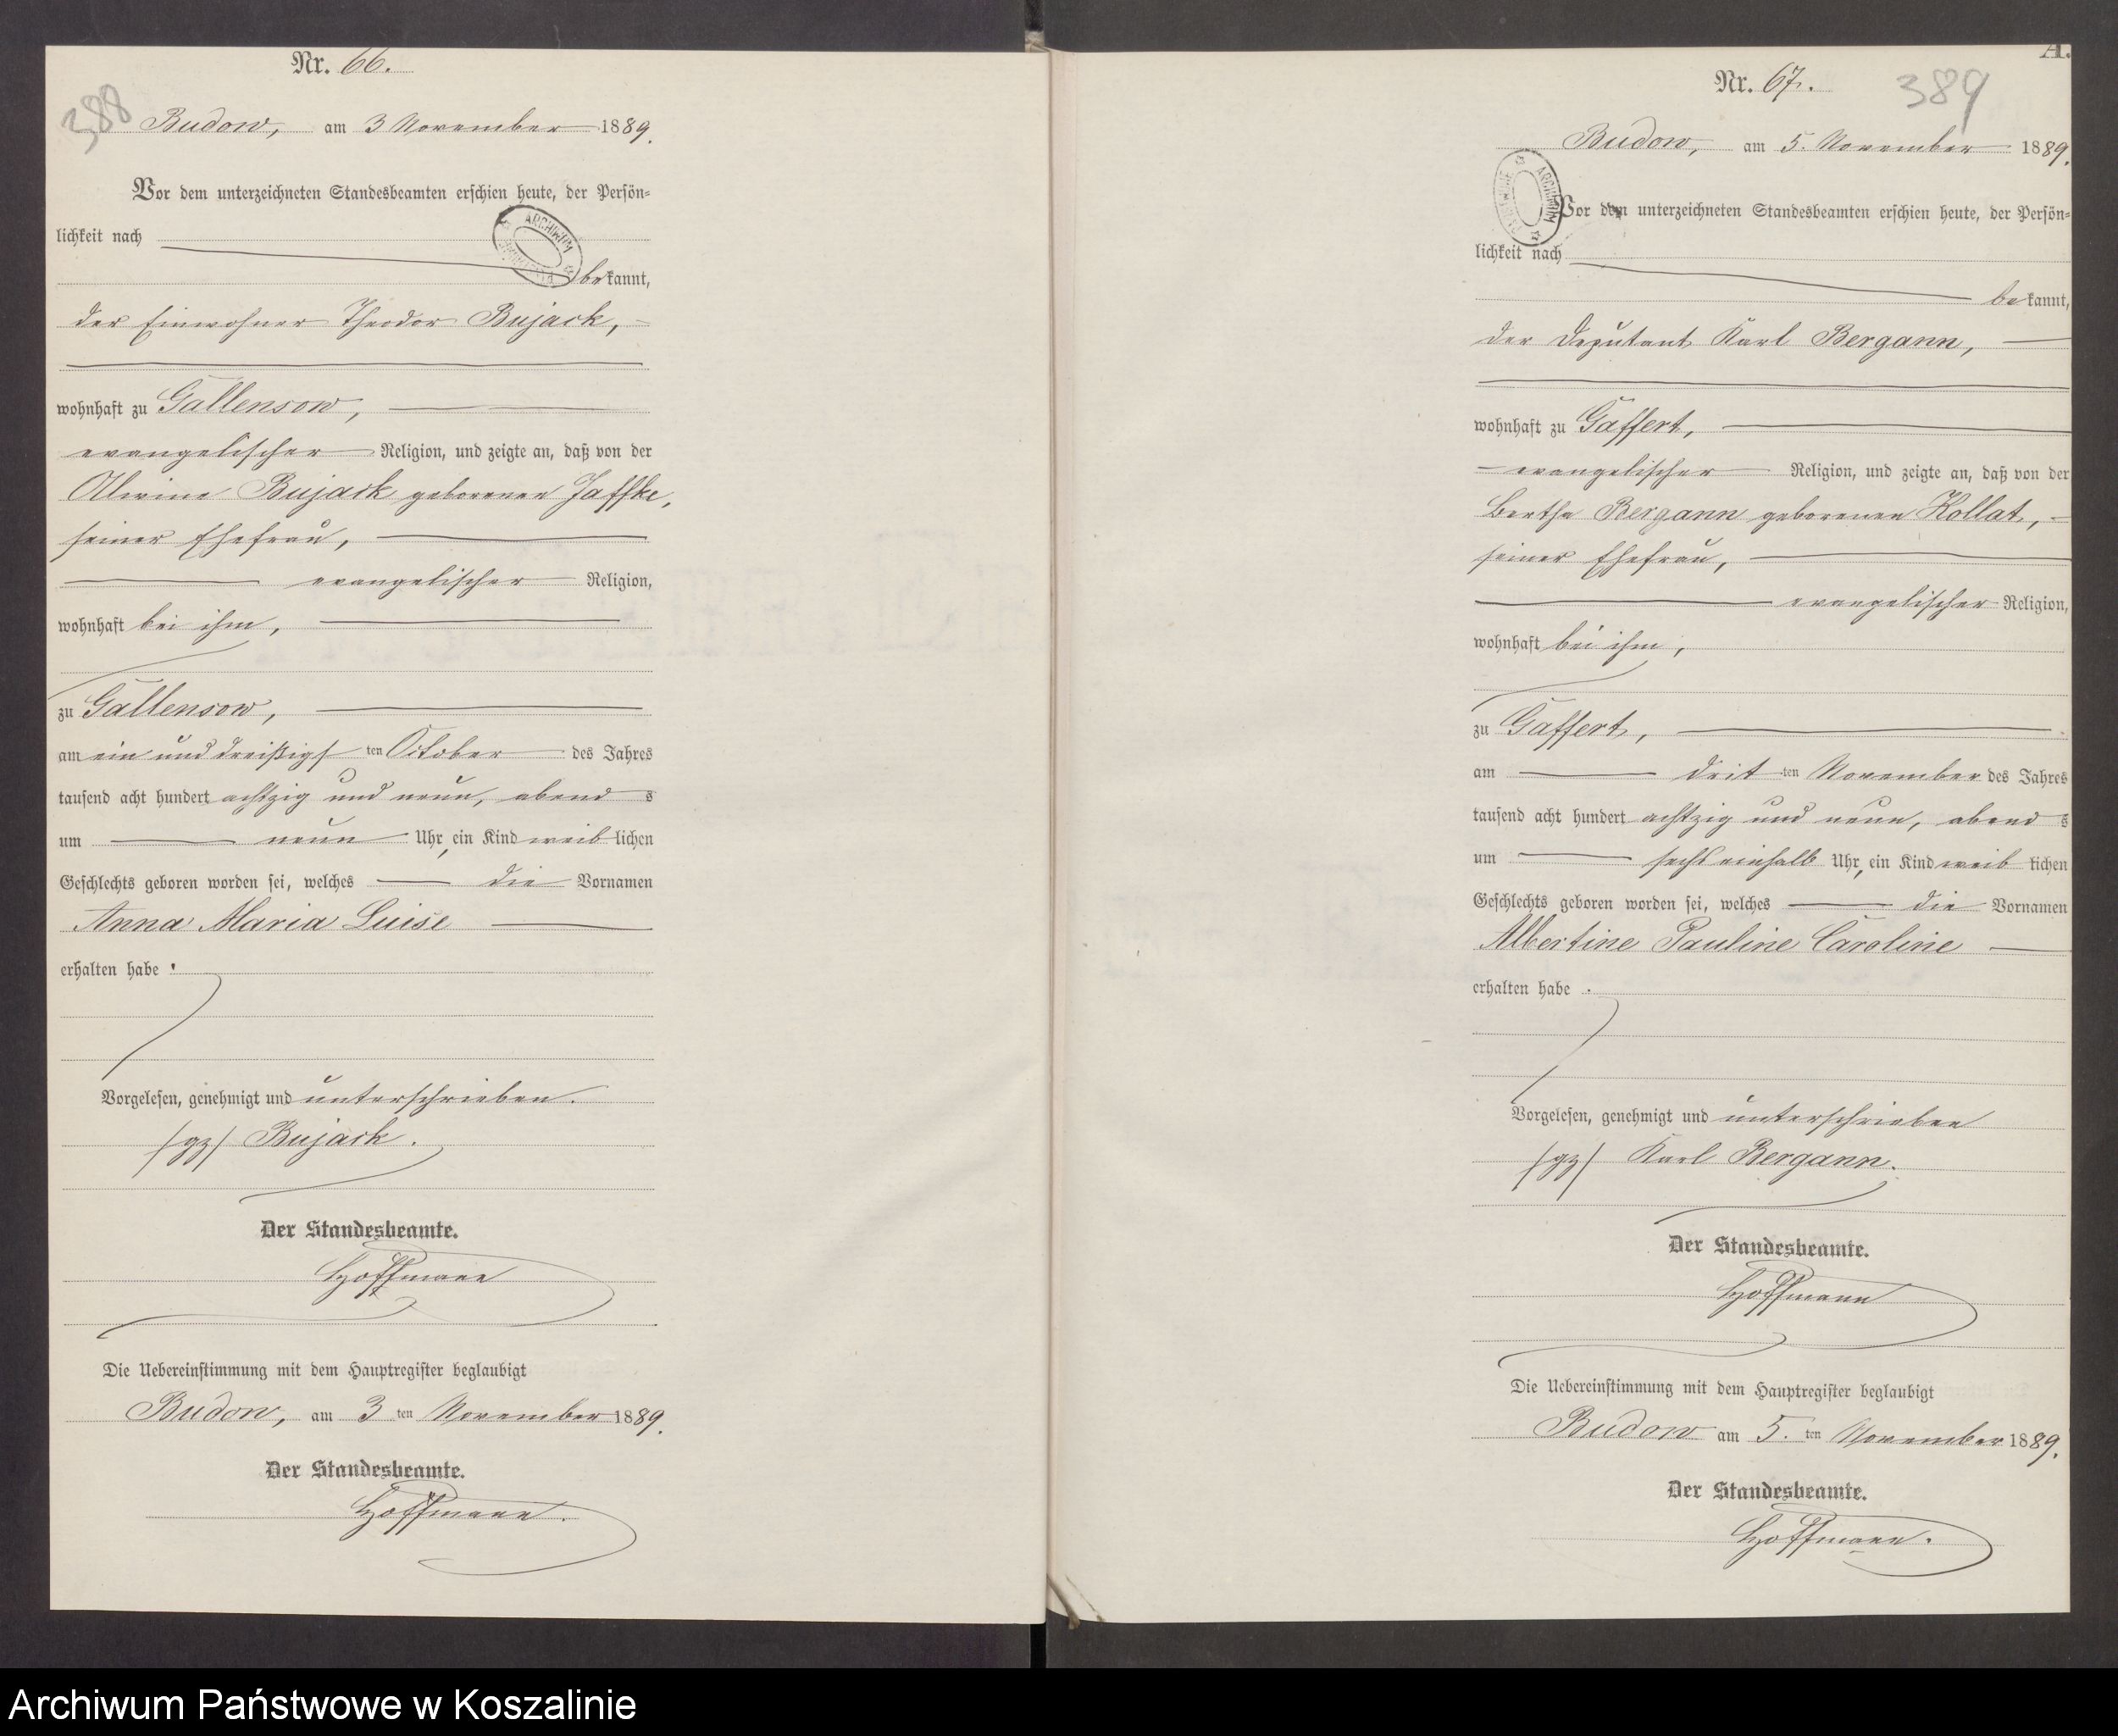 Nr. 66.
388
Budow, am 3 November 1889.
Vor dem unterzeichneten Standesbeamten erschien heute, der Persön-
lichkeit nach
bekannt,
der Einwohner Theodor Bujack,
wohnhaft zu Gallensow,
evangelischer Religion, und zeigte an, daß von der
Alwine Bujack geborenen Jaffke,
seiner Ehefrau,
evangelischer Religion,
wohnhaft bei ihm,
zu Gallensow,
am ein und dreißigsten October des Jahres
tausend acht hundert achtzig und neun, abends
um neun Uhr, ein Kind weiblichen
Geschlechts geboren worden sei, welches die Vornamen
Anna Maria Luise
erhalten habe.
Vorgelesen, genehmigt und unterschrieben.
/gz/ Bujack.
Der Standesbeamte.
Hoffmann
Die Uebereinstimmung mit dem Hauptregister beglaubigt
Budow, am 3ten November 1889.
Der Standesbeamte.
Hoffmann.
A.
Nr. 67.
389
Budow, am 5. November 1889.
ARCHIWUM
Vor dem unterzeichneten Standesbeamten erschien heute, der Persön-
lichkeit nach
bekannt,
der Deputant Karl Bergann,
wohnhaft zu Gaffert,
evangelischer Religion, und zeigte an, daß von der
Bertha Bergann geborenen Kollat,
seiner Ehefrau,
evangelischer Religion,
wohnhaft bei ihm,
zu Gaffert,
am dritten November des Jahres
tausend acht hundert achtzig und neun, abends
um sechs einhalb Uhr, ein Kind weiblichen
Geschlechts geboren worden sei, welches die Vornamen
Albertine Pauline Caroline
erhalten habe.
Vorgelesen, genehmigt und unterschrieben
/gz/ Karl Bergann.
Der Standesbeamte.
Hoffmann
Die Uebereinstimmung mit dem Hauptregister beglaubigt
Budow am 5.ten November 1889.
Der Standesbeamte.
Hoffmann.
Archiwum Państwowe w Koszalinie